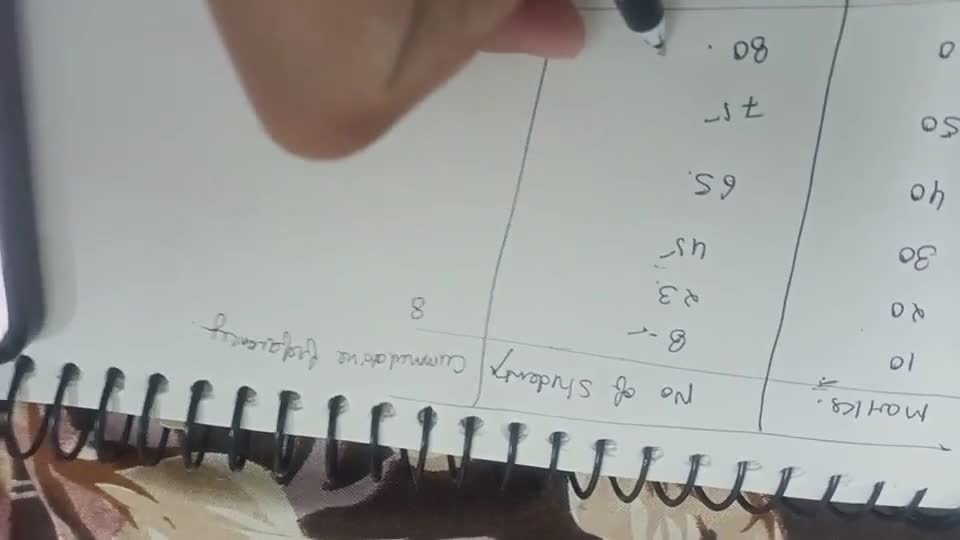 Marks. No of Students Cummulative frequency
10 8 8
20 23
30 45
40 65
50 75
0 80